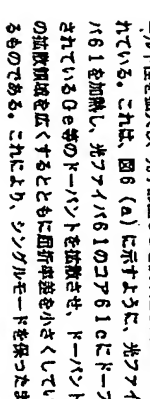 れている。これは、図6 (a) に示すように、光ファイ
バ61を加熱し、光ファイバ61のコア61cにドープ
されているGe等のドーパントを拡散させ、ドーパント
の拡散領域を広くするとともに屈折率差を小さくしてい
るものである。これにより、シングルモードを保ったま